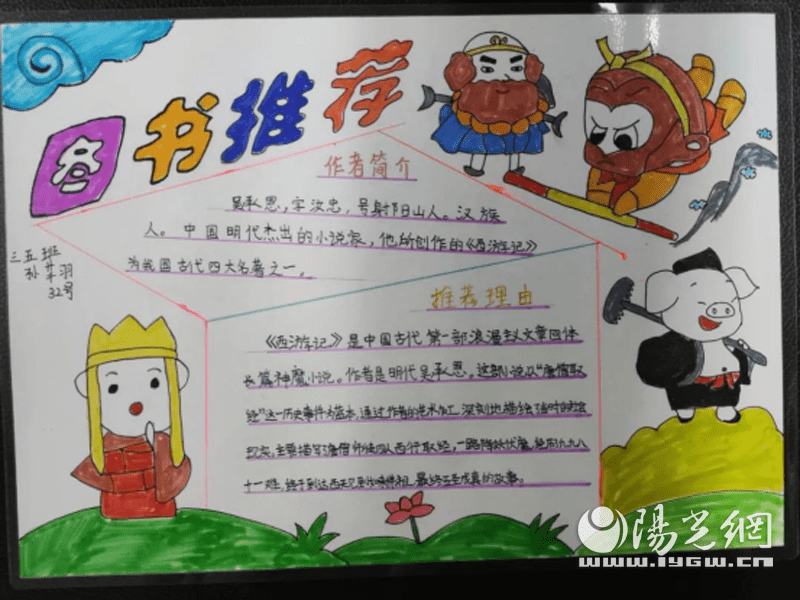 图书推荐
作者简介
吴承恩，字汝忠，号射阳山人。汉族
人。中国明代杰出的小说家，他所创作的《西游记》
为我国古代四大名著之一。
三五班
孙 羽
32号
推荐理由
《西游记》是中国古代第一部浪漫主义章回体
长篇神魔小说。作者是明代吴承恩。这部小说以“唐僧取
经”这一历史事件为蓝本，通过作者的艺术加工，深刻地描绘了当时的社会
现实，主要描写了唐僧师徒四人西行取经，一路降妖伏魔，经历九九八
十一难，终于到达西天见到如来佛祖，最终五圣成真的故事。
陽光網
www.iygw.cn